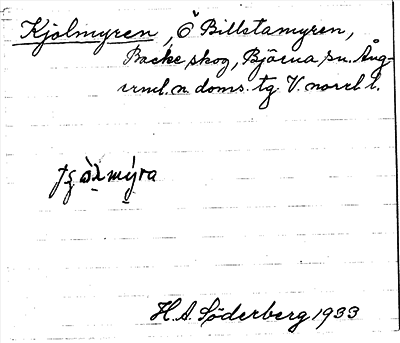 Kjölmyren, Ö Billstamyren,
Backe skog, Björna sn. Ång-
erml. n. doms. tg V. norrl l.
H. A. Söderberg 1933